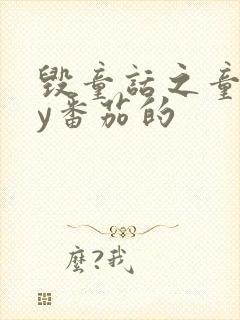 毁童话之童
y番茄的
麼?我